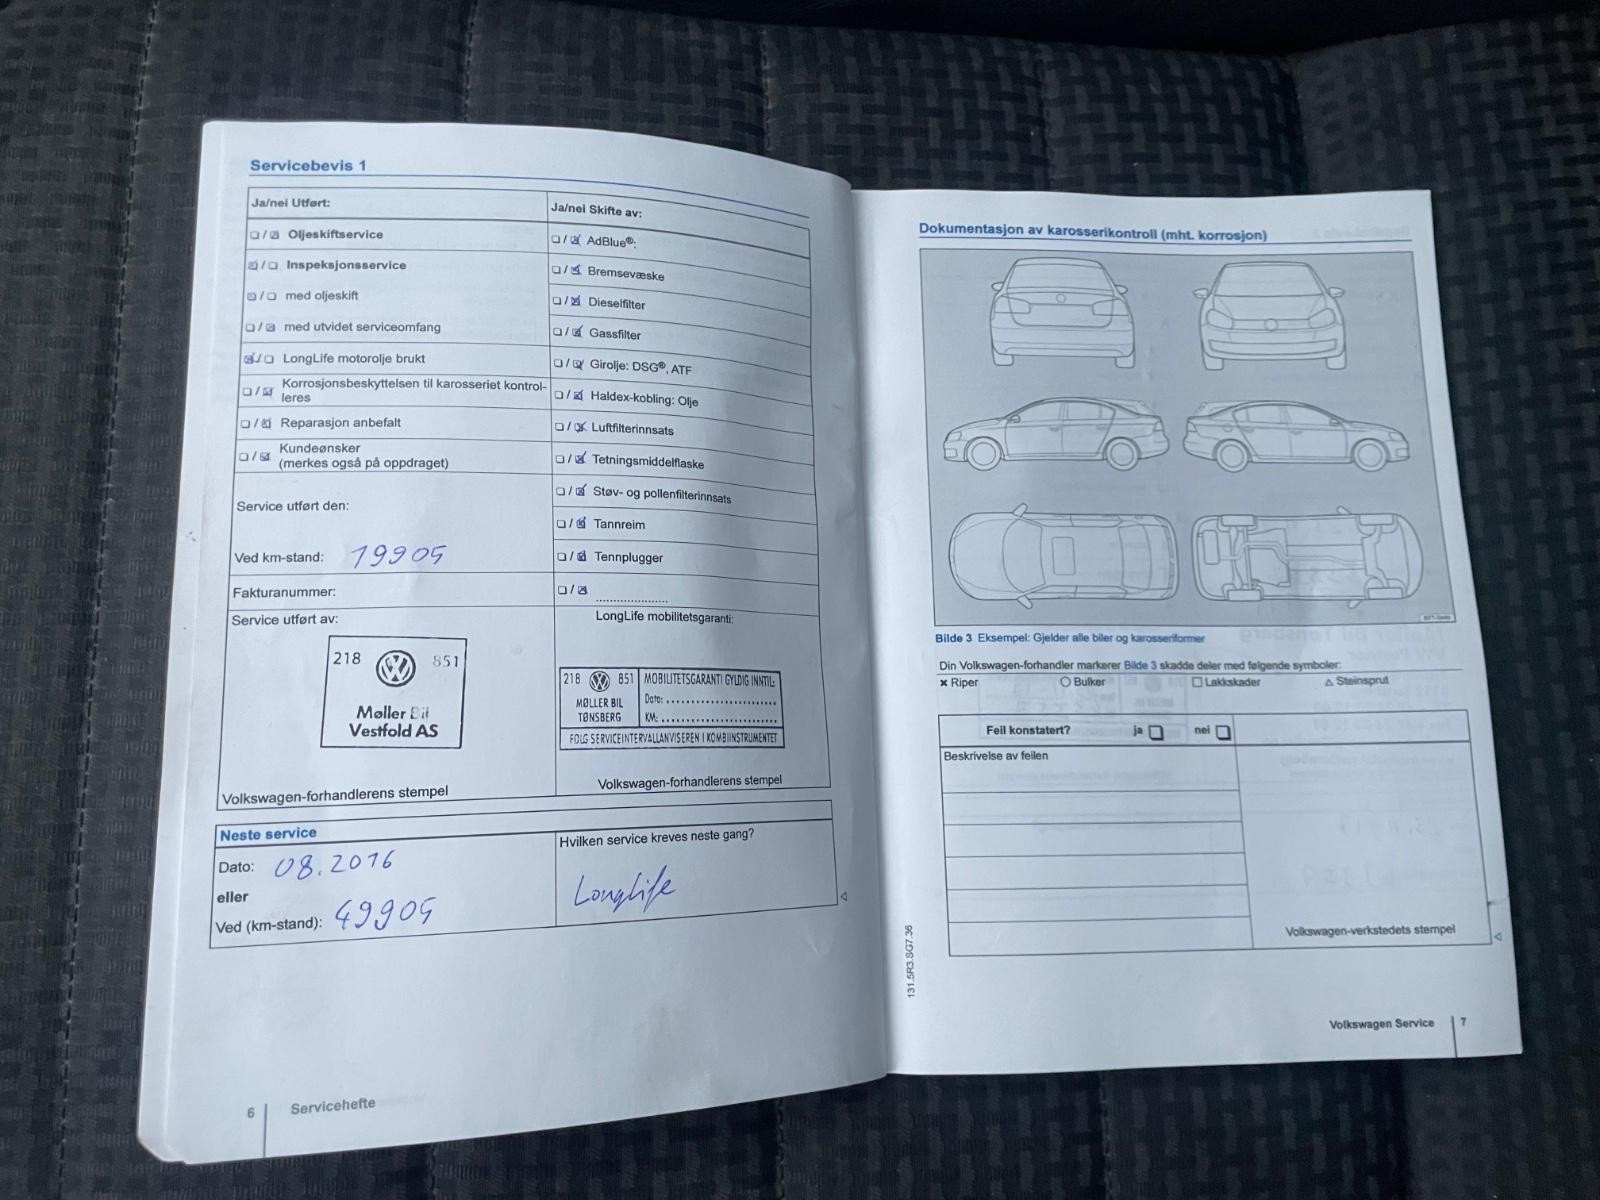 Servicebevis 1
Ja/nei Utført:
Ja/nei Skifte av:
Oljeskiftservice
Inspeksjonsservice
med oljeskift
med utvidet serviceomfang
LongLife motorolje brukt
Korrosjonsbeskyttelsen til karosseriet kontrol-
leres
Reparasjon anbefalt
Kundeønsker
(merkes også på oppdraget)
AdBlue®:
Bremsevæske
Dieselfilter
Gassfilter
Girolje: DSG®, ATF
Haldex-kobling: Olje
Luftfilterinnsats
Tetningsmiddelflaske
Støv- og pollenfilterinnsats
Tannreim
Tennplugger
Service utført den:
Ved km-stand: 19905
Fakturanummer:
Service utført av:
218 851
Møller Bil
Vestfold AS
Volkswagen-forhandlerens stempel
LongLife mobilitetsgaranti:
218 851
MØLLER BIL
TØNSBERG
MOBILITETSGARANTI GYLDIG INNTIL:
Dato:
KM:
FØLG SERVICEINTERVALLANVISEREN I KOMBIINSTRUMENTET
Volkswagen-forhandlerens stempel
Neste service
Dato: 08.2016
eller
Ved (km-stand): 49905
Hvilken service kreves neste gang?
Longlife
6 Servicehefte
Dokumentasjon av karosserikontroll (mht. korrosjon)
Bilde 3 Eksempel: Gjelder alle biler og karosseriformer
Din Volkswagen-forhandler markerer Bilde 3 skadde deler med følgende symboler:
× Riper ○ Bulker □ Lakkskader △ Steinsprut
Feil konstatert? ja nei
Beskrivelse av feilen
Volkswagen-verkstedets stempel
131.5R3.SG7.36
Volkswagen Service 7